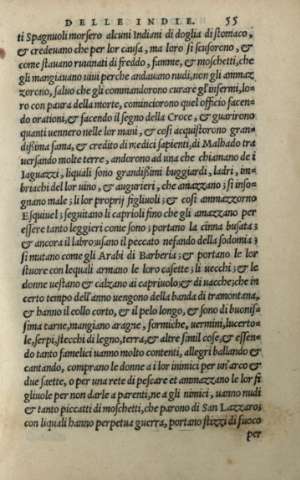 DELLE INDIE. 55
ti Spagnuoli morsero alcuni Indiani di doglia di stomaco,
& credeuano che per lor causa, ma loro si scusorono, &
come stauano ruuinati di freddo, famme, & moschetti, che
gli mangiauano uiui perche andauano nudi, non gli ammaz
zorono, saluo che gli commandorono curare gl'infermi, lo-
ro con paura della morte, cominciorono quel officio facen-
do orationi, & facendo il segno della Croce, & guarirono
quanti uennero nelle lor mani, & cosi acquistorono gran-
dissima fama, & credito di medici sapienti, di Malhado tra
uersando molte terre, andorono ad una che chiamano de i
Iaguazzi, liquali sono grandissimi buggiardi, ladri, im-
briachi del lor uino, & augurieri, che amazzano; si inso-
gnano male; li lor proprij figliuoli; & cosi ammazzorno
Esquiuel; seguitano li caprioli fino che gli amazzano per
essere tanto leggieri come sono; portano la cinna busata;
& ancora il labro; usano il peccato nefando della sodomia;
si mutano come gli Arabi di Barberia; & portano le lor
stuore con lequali armano le loro casette; li uecchi; & le
donne uestano & calzano ai capriuolo; & di uacche; che in
certo tempo dell'anno uengono della banda di tramontana,
& hanno il collo corto, & il pelo longo, & sono di buonis-
sima carne, mangiano aragne, formiche, uermini, lucerto-
le, serpi, stecchi di legno, terra, & altre simil cose, & essen-
do tanto famelici uanno molto contenti, allegri ballando &
cantando, comprano le donne a i lor inimici per un'arco &
due saette, o per una rete di pescare et ammazzano le lor fi
gliuole per non darle a parenti, ne a gli nimici, uanno nudi
& tanto piccatti di moschetti, che parono di San Lazzaro;
con liquali hanno perpetua guerra, portano stizzi di fuoco
per